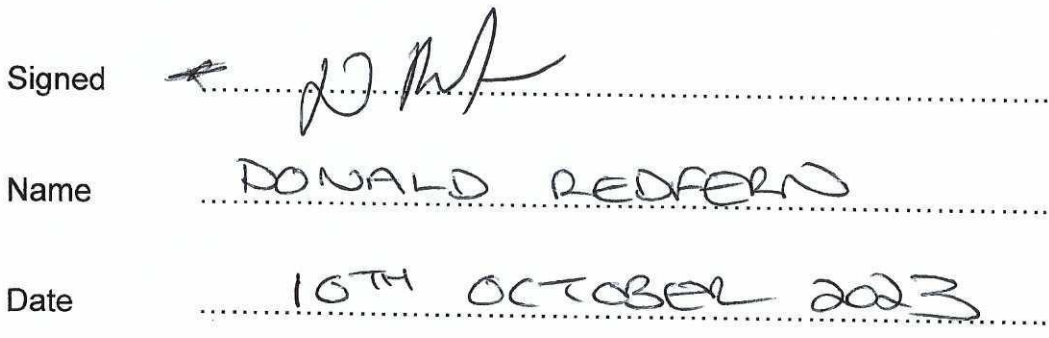 Signed
Name DONALD REDFERN
Date 10TH OCTOBER 2023